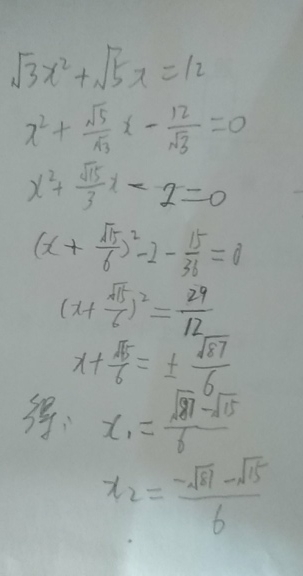 √3x²+√5x=12
x²+√5/√3 x-12/√3=0
x²+√15/3 x-2=0
(x+√15/6)²-2-15/36=0
(x+√15/6)²=29/12
x+√15/6=±√87/6
得: x₁=(√87-√15)/6
x₂=(-√87-√15)/6